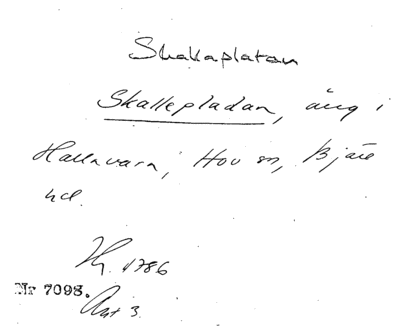 Skallaplatan
Skallepladan, äng i
Hallavara, Hov sn, Bjäre
hd.
Hy. 1786
Nr 7098.
Akt 3.